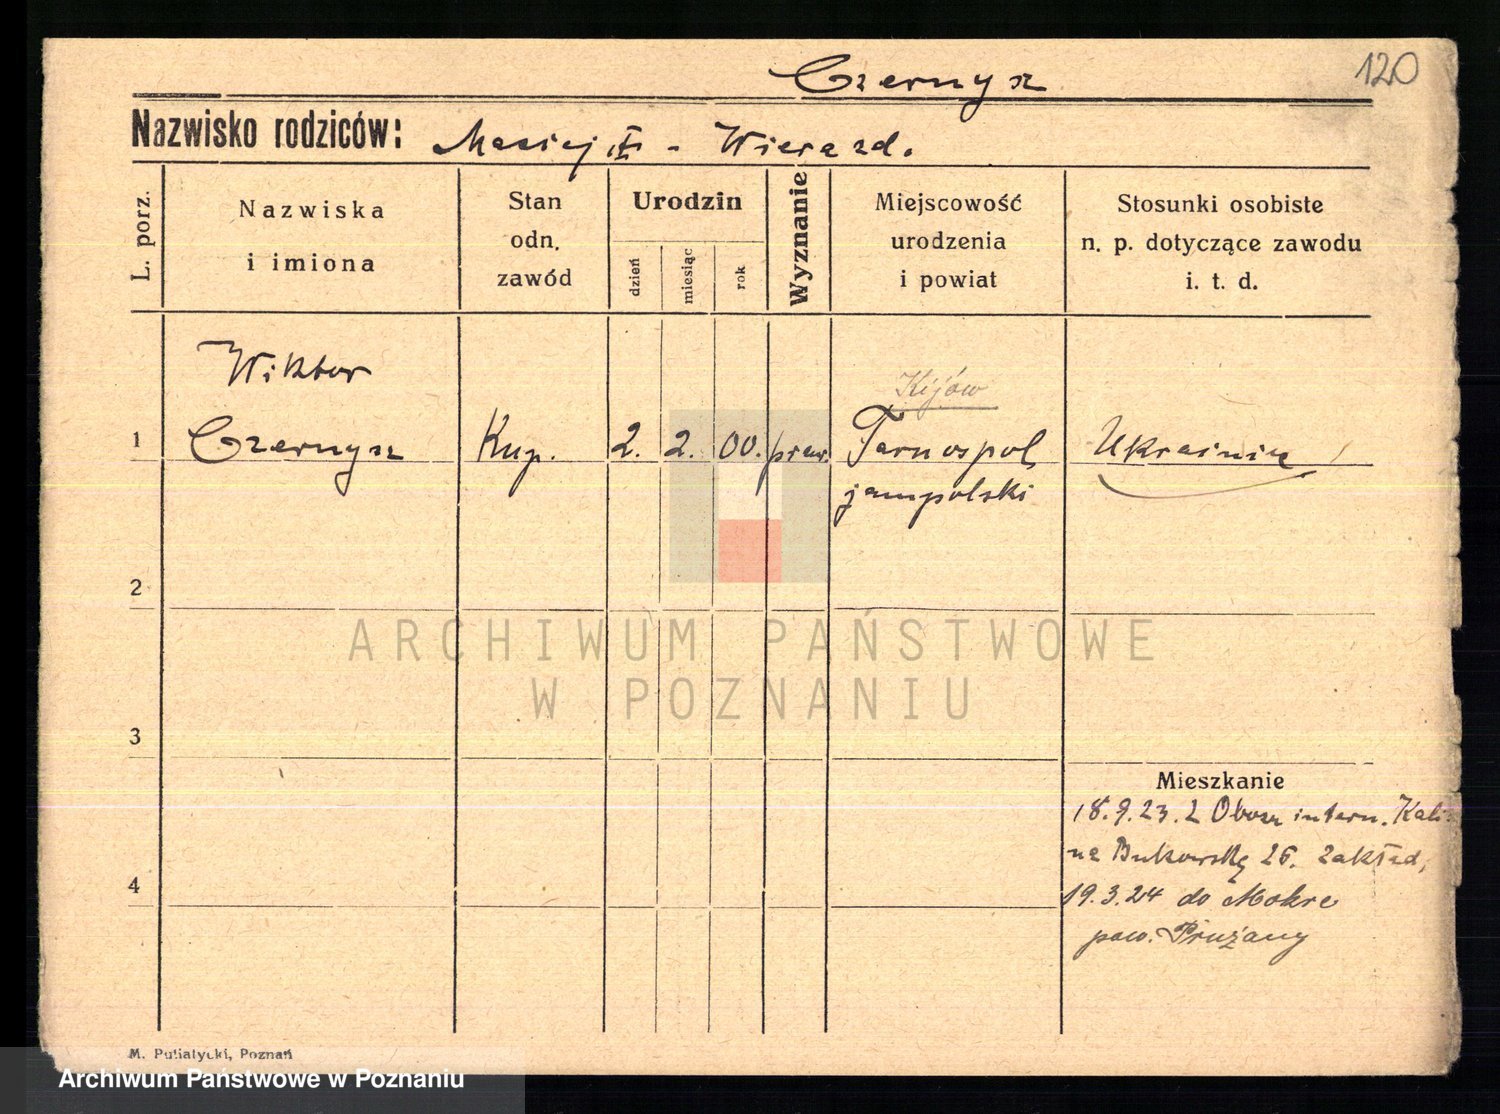 120
Czernysz
Nazwisko rodziców: Maciej - Wiera zd.
L. porz.
Nazwiska
i imiona
Stan
odn.
zawód
Urodzin
dzień
miesiąc
rok
Wyznanie
Miejscowość
urodzenia
i powiat
Stosunki osobiste
n. p. dotyczące zawodu
i. t. d.
Wiktor
Kijów
1 Czernysz Kup. 2. 2. 00. praw. Tarnospol Ukrainiec
jampolski
2
ARCHIWUM PAŃSTWOWE
W POZNANIU
3
Mieszkanie
18.9.23. z Obozu intern. Kali-
na Bukowską 26. Zakład,
4
19.3.24 do Mokre
pow. Prużany
M. Putiatycki, Poznań
Archiwum Państwowe w Poznaniu